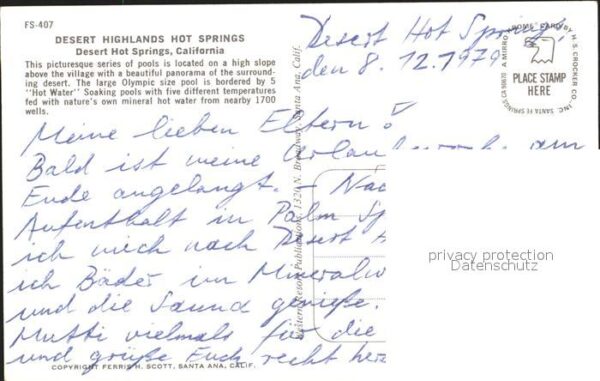 FS-407
DESERT HIGHLANDS HOT SPRINGS
Desert Hot Springs, California
This picturesque series of pools is located on a high slope
above the village with a beautiful panorama of the surround-
ing desert. The large Olympic size pool is bordered by 5
"Hot Water" Soaking pools with five different temperatures
fed with nature's own mineral hot water from nearby 1700
wells.
Desert Hot Springs,
den 8. 12. 1979
PLACE STAMP
HERE
Meine lieben Eltern!
Bald ist meine
Ende angelangt. –
Aufenthalt in Palm Sp
ich mich nach Desert H
ich Bäder im Mineralw
und die Sauna genieße.
Mutti vielmals für die
und grüße Euch recht herz
Western Resort Publications, 1320 N. Broadway, Santa Ana, Calif.
privacy protection
Datenschutz
COPYRIGHT FERRIS H. SCOTT, SANTA ANA, CALIF.